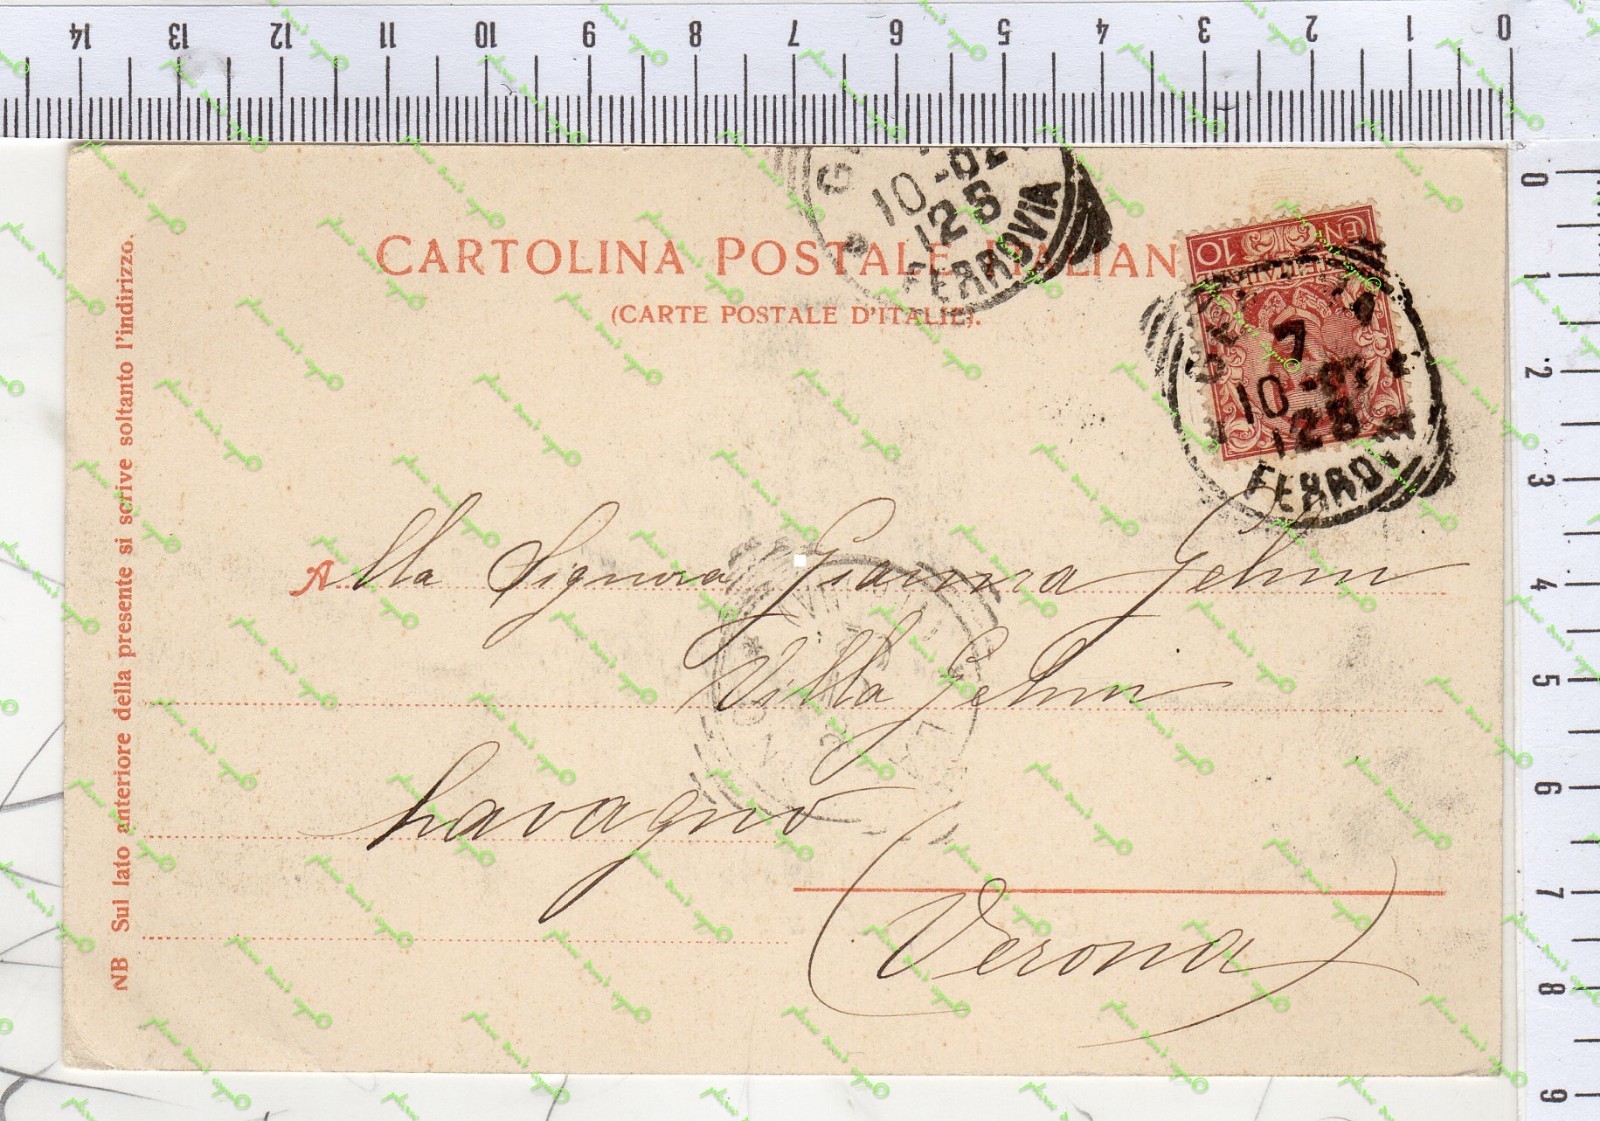 14 13 12 11 10 9 8 7 6 5 4 3 2 1 0
CARTOLINA POSTALE ITALIAN
(CARTE POSTALE D'ITALIE).
10-02
12S
FERROVIA
10
7
10-02
12S
FERROVIA
Alla Signora Gianna Gehm
Villa Gehm
Lavagno
(Verona)
NB Sul lato anteriore della presente si scrive soltanto l'indirizzo.
0
1
2
3
4
5
6
7
8
9